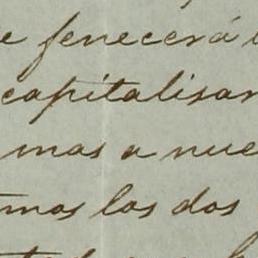 e fenecerá
capitalisar
mas a nue
mos los dos